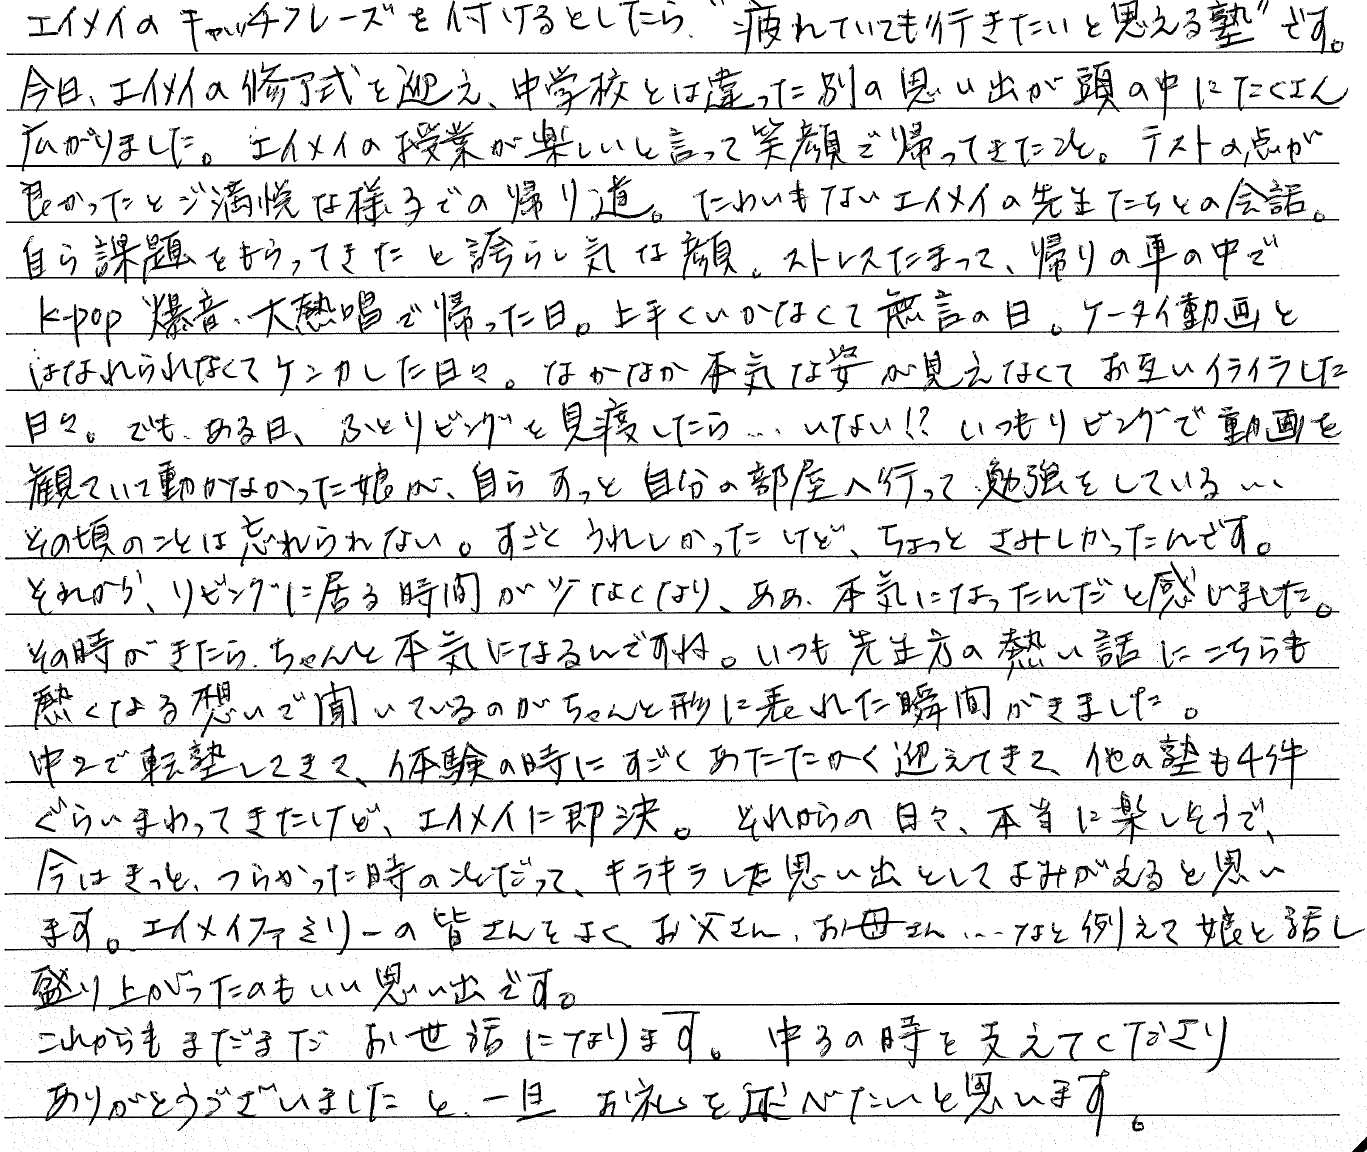 エイメイのキャッチフレーズを付けるとしたら、"疲れていても行きたいと思える塾"です。
今日、エイメイの修了式を迎え、中学校とは違った別の思い出が頭の中にたくさん
広がりました。エイメイの授業が楽しいと言って笑顔で帰ってきたこと。テストの点が
良かったとご満悦な様子での帰り道。たわいもないエイメイの先生たちとの会話。
自ら課題をもらってきたと誇らし気な顔。ストレスたまって、帰りの車の中で
K-pop 爆音、大熱唱で帰った日。上手くいかなくて無言の日。ケータイ動画と
はなれられなくてケンカした日々。なかなか本気な姿が見えなくてお互いイライラした
日々。でも、ある日、ふとリビングを見渡したら…いない!? いつもリビングで動画を
観ていて動かなかった娘が、自らすっと自分の部屋へ行って勉強をしている…
その頃のことは忘れられない。すごくうれしかったけど、ちょっとさみしかったんです。
それから、リビングに居る時間が少なくなり、ああ、本気になったんだと感じました。
その時がきたら、ちゃんと本気になるんですね。いつも先生方の熱い話にこちらも
熱くなる想いで聞いているのがちゃんと形に表れた瞬間がきました。
中2で転塾してきて、体験の時にすごくあたたかく迎えてきて、他の塾も4件
ぐらいまわってきたけど、エイメイに即決。それからの日々、本当に楽しそうで、
今はきっと、つらかった時のことだって、キラキラした思い出としてよみがえると思い
ます。エイメイファミリーの皆さんをよく、お父さん、お母さん…なと例えて娘と話し
盛り上がったのもいい思い出です。
これからもまだまだお世話になります。中3の時を支えてくださり
ありがとうございましたと、一旦お礼を述べたいと思います。